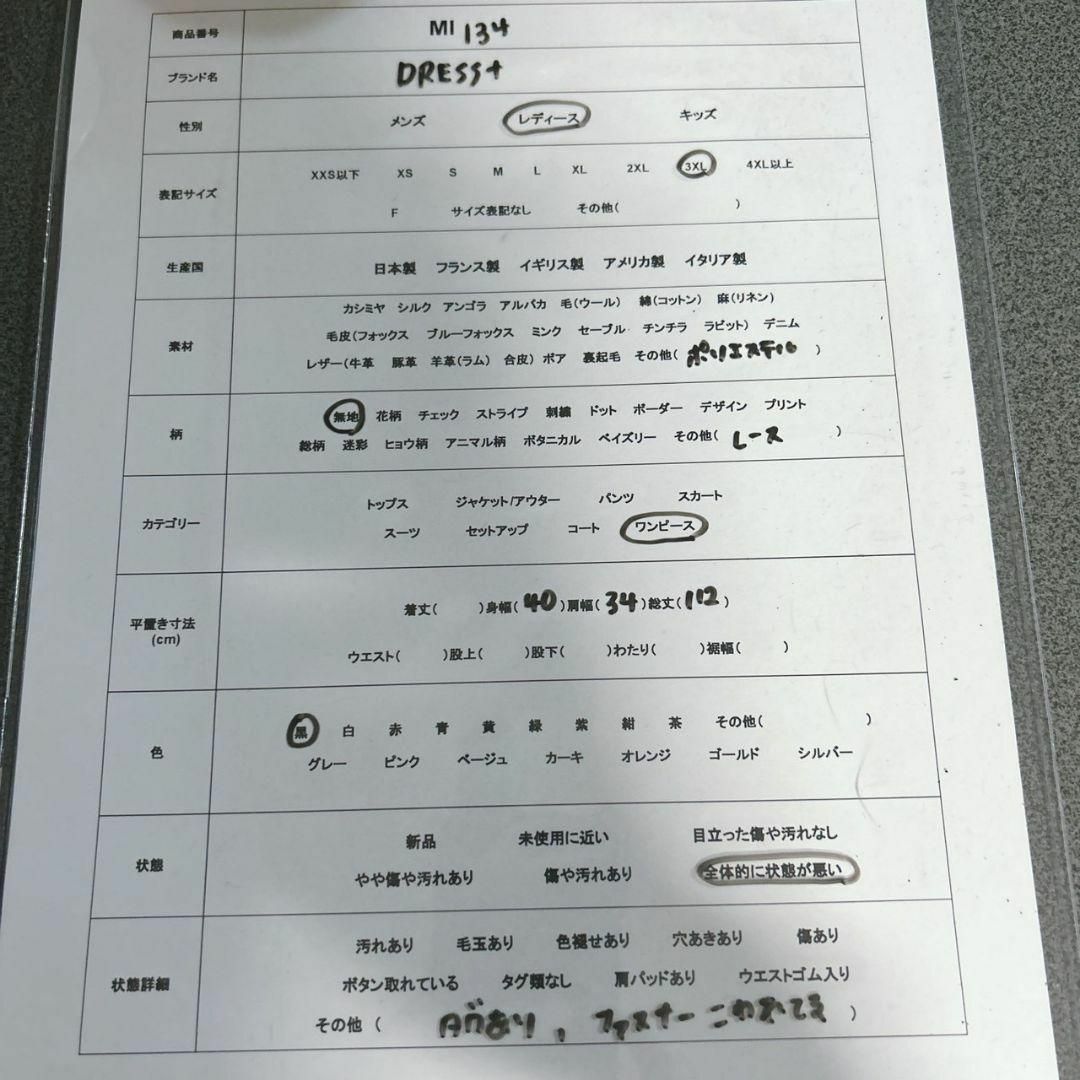 商品番号 MI 134
ブランド名 DRESS+
性別 メンズ レディース キッズ
表記サイズ
XXS以下 XS S M L XL 2XL 3XL 4XL以上
F サイズ表記なし その他( )
生産国 日本製 フランス製 イギリス製 アメリカ製 イタリア製
素材
カシミヤ シルク アンゴラ アルパカ 毛(ウール) 綿(コットン) 麻(リネン)
毛皮(フォックス ブルーフォックス ミンク セーブル チンチラ ラビット) デニム
レザー(牛革 豚革 羊革(ラム) 合皮) ボア 裏起毛 その他( ポリエステル )
柄
無地 花柄 チェック ストライプ 刺繍 ドット ボーダー デザイン プリント
総柄 迷彩 ヒョウ柄 アニマル柄 ボタニカル ペイズリー その他( レース )
カテゴリー
トップス ジャケット/アウター パンツ スカート
スーツ セットアップ コート ワンピース
平置き寸法
(cm)
着丈( )身幅( 40 )肩幅( 34 )総丈( 112 )
ウエスト( )股上( )股下( )わたり( )裾幅( )
色
黒 白 赤 青 黄 緑 紫 紺 茶 その他( )
グレー ピンク ベージュ カーキ オレンジ ゴールド シルバー
状態
新品 未使用に近い 目立った傷や汚れなし
やや傷や汚れあり 傷や汚れあり 全体的に状態が悪い
状態詳細
汚れあり 毛玉あり 色褪せあり 穴あきあり 傷あり
ボタン取れている タグ類なし 肩パッドあり ウエストゴム入り
その他 ( あり, ファスナーこわれてる )